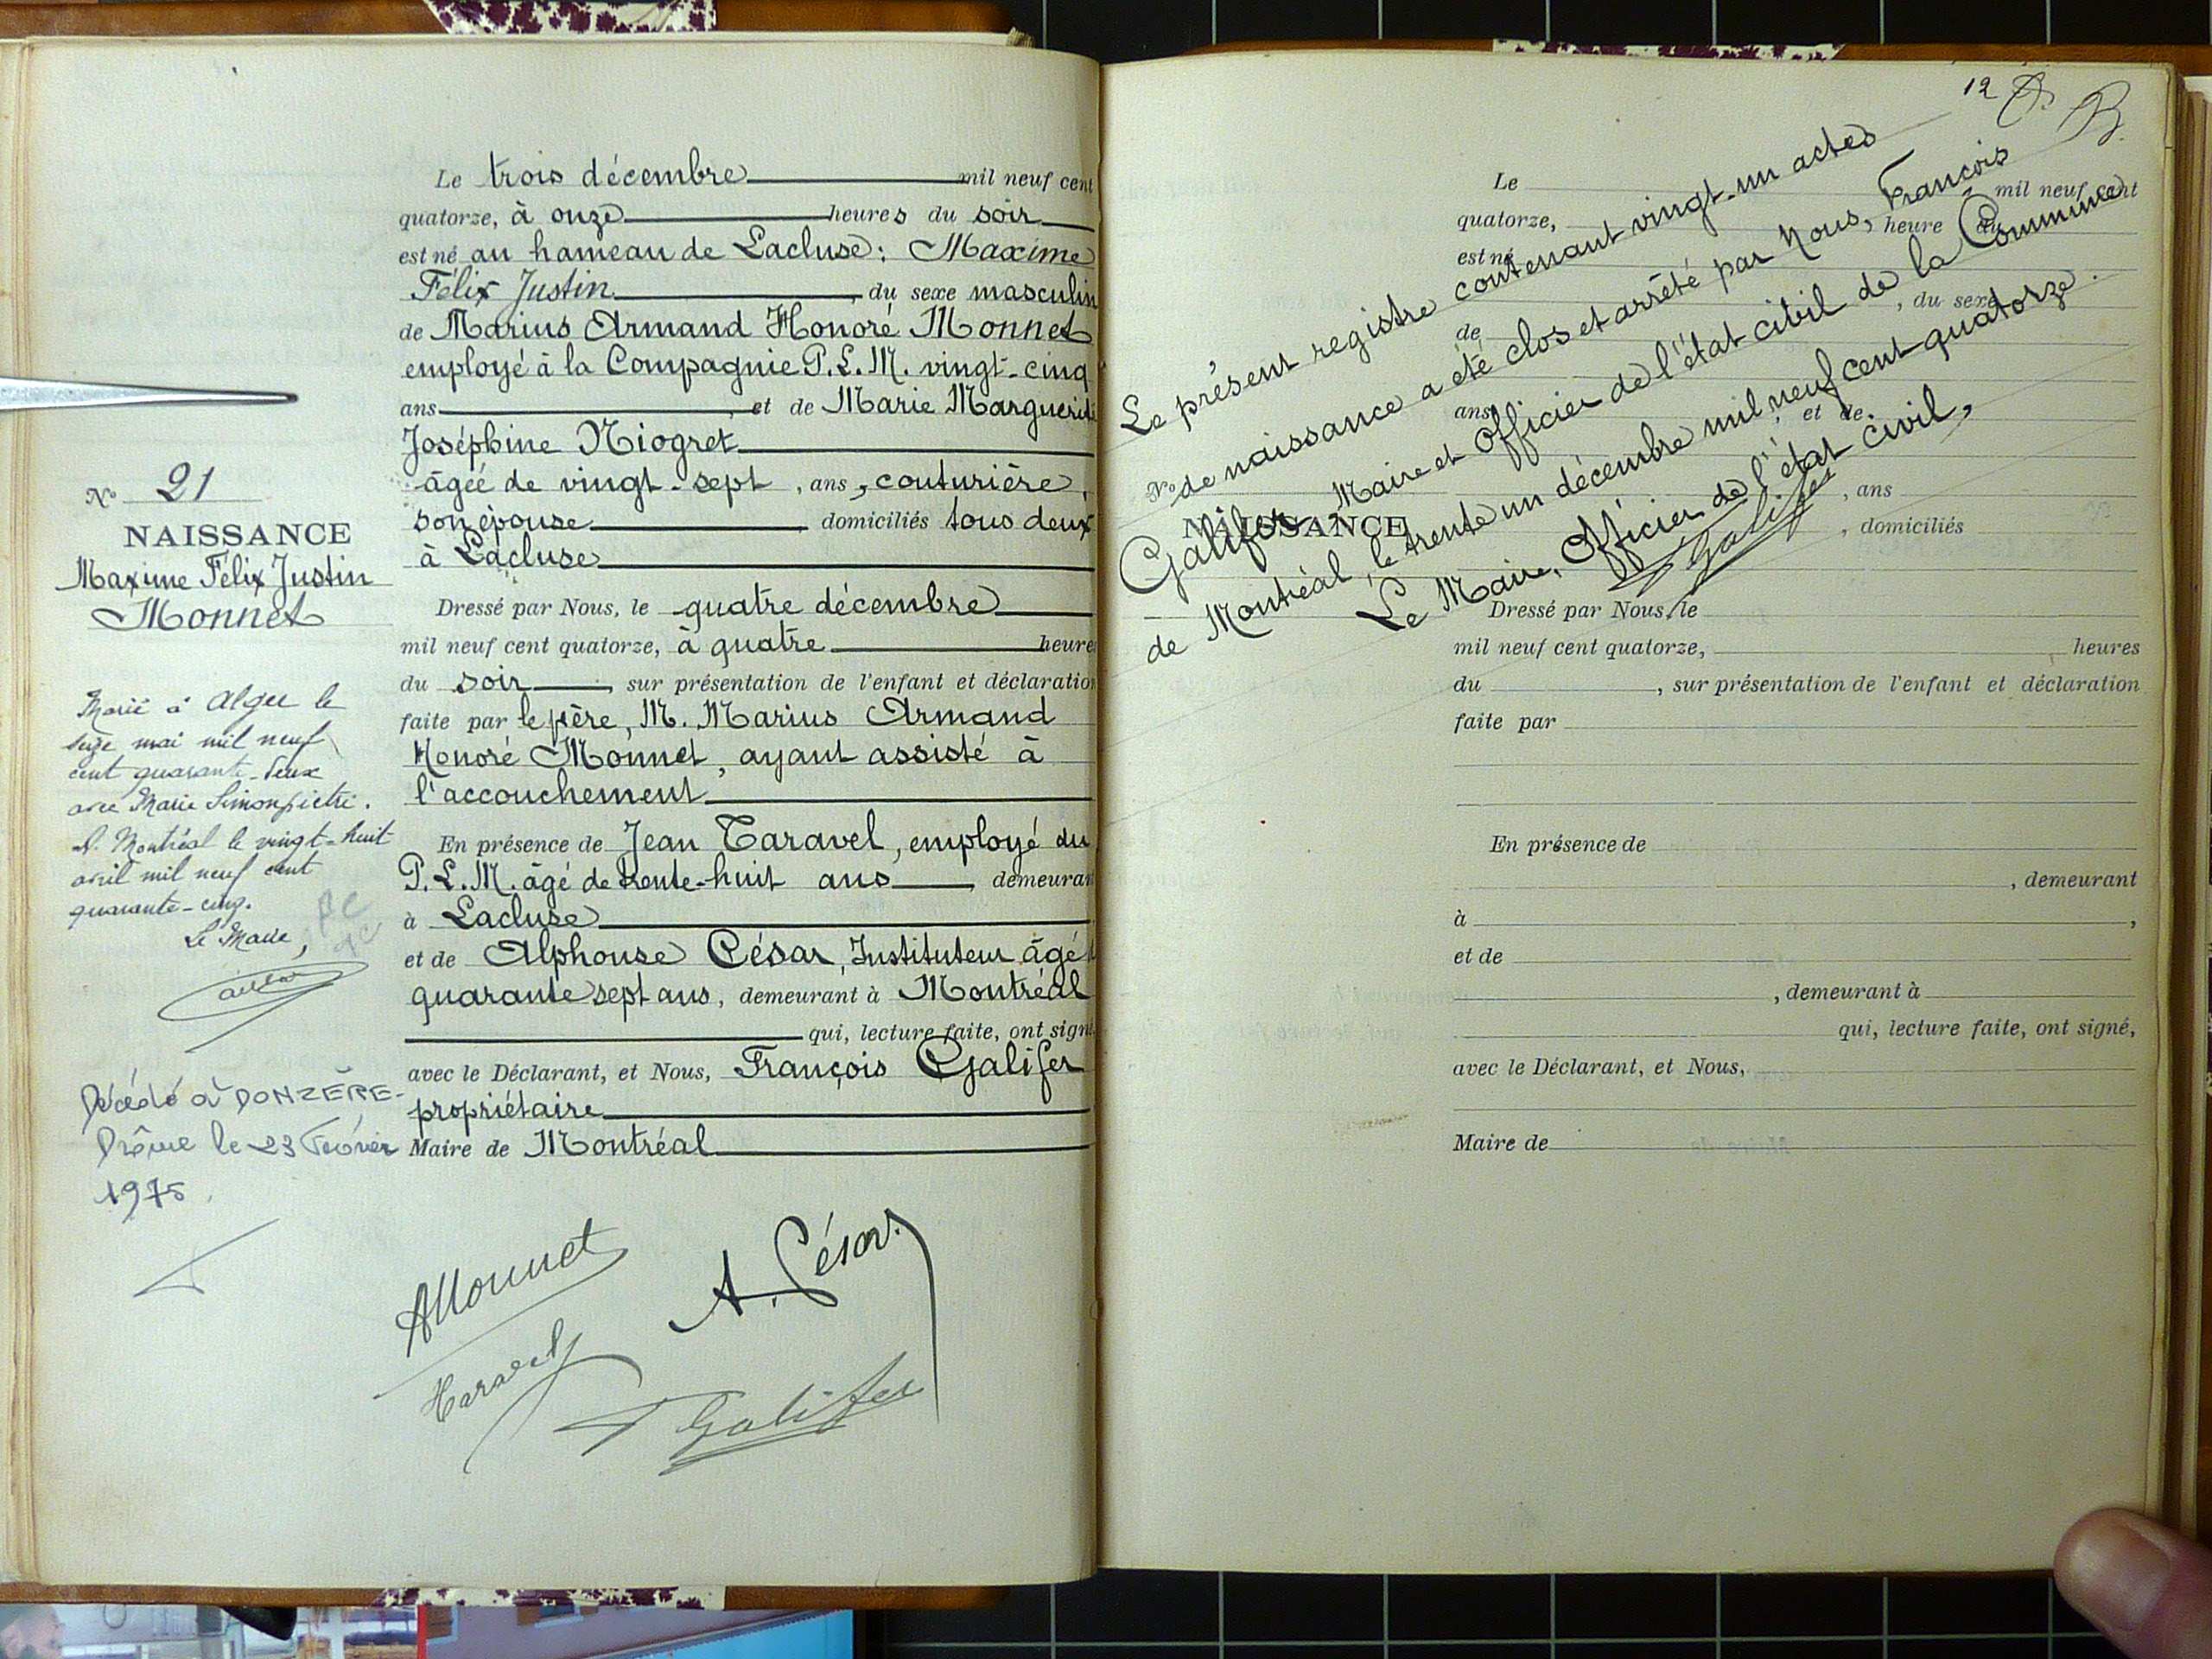 Le trois décembre mil neuf cent
quatorze, à onze heures du soir
est né au hameau de Lacluse : Maxime
Félix Justin, du sexe masculin
de Marius Armand Honoré Monnet
employé à la Compagnie P.L.M. vingt-cinq
ans, et de Marie Marguerite
Joséphine Niogret
âgée de vingt-sept, ans, couturière,
son épouse domiciliés tous deux
à Lacluse
No 21
NAISSANCE
Maxime Félix Justin
Monnet
Dressé par Nous, le quatre décembre
mil neuf cent quatorze, à quatre heures
du soir, sur présentation de l'enfant et déclaration
faite par le père, M. Marius Armand
Honoré Monnet, ayant assisté à
l'accouchement
En présence de Jean Taravel, employé du
P.L.M. âgé de trente-huit ans, demeurant
à Lacluse
et de Alphonse César, Instituteur âgé
quarante sept ans, demeurant à Montréal
qui, lecture faite, ont signé
avec le Déclarant, et Nous, François Galifer
propriétaire
Maire de Montréal
Marié à Alger le
seize mai mil neuf
cent quarante-deux
avec Marie Simonpietri.
A Montréal le vingt-huit
avril mil neuf cent
quarante-cinq.
Le Maire,
Décédé à DONZÈRE-
Drôme le 23 Février
1975.
AMonnet
A. César
Taravel
F Galifer
12
B
Le présent registre contenant vingt-un actes
de naissance a été clos et arrêté par Nous, François
Galifer, Maire et Officier de l'état civil de la Commune
de Montréal, le trente un décembre mil neuf cent quatorze.
Le Maire, Officier de l'état civil,
F Galifer
Le mil neuf cent
quatorze, heure du
est né
, du sexe
de
ans, et de
No
, ans
NAISSANCE
, domiciliés
Dressé par Nous, le
mil neuf cent quatorze, heures
du , sur présentation de l'enfant et déclaration
faite par
En présence de
, demeurant
à ,
et de
, demeurant à
qui, lecture faite, ont signé,
avec le Déclarant, et Nous,
Maire de